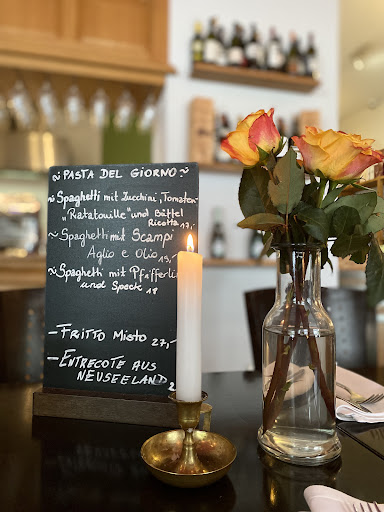 ~ PASTA DEL GIORNO ~
~ Spaghetti mit Zucchini, Tomaten-
„Ratatouille" und Büffel
Ricotta 17,-
~ Spaghetti mit Scampi
Aglio e Olio 19,-
~ Spaghetti mit Pfifferli
und Speck 18
- Fritto Misto 27,-
- Entrecote aus
Neuseeland 2